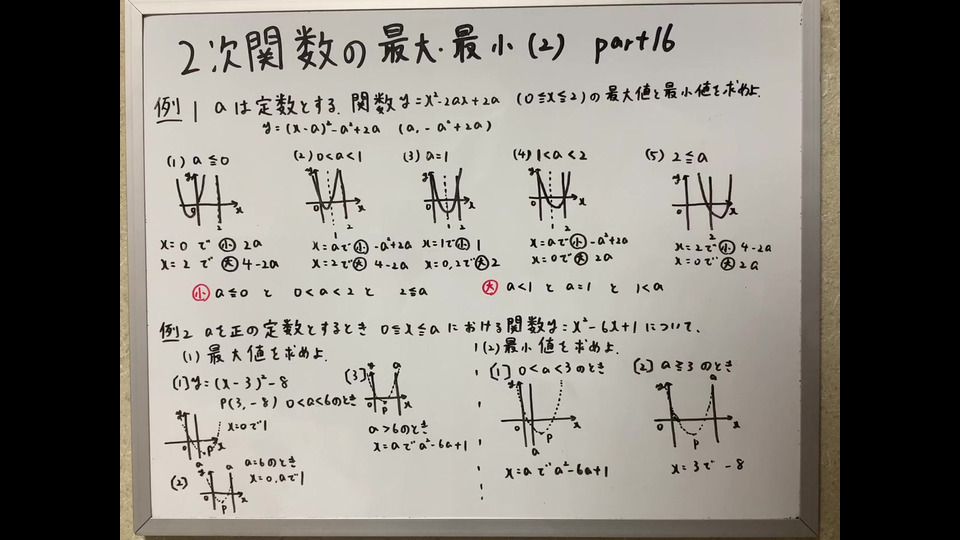 2次関数の最大・最小(2) part16
例1 aは定数とする。関数y=x²-2ax+2a (0≦x≦2)の最大値と最小値を求めよ。
y=(x-a)²-a²+2a (a, -a²+2a)
(1) a≦0 (2) 0<a<1 (3) a=1 (4) 1<a<2 (5) 2≦a
y 0 2 x y 0 1 2 x y 0 2 x y 0 2 x y 0 2 x
x=0で小 2a x=aで小 -a²+2a x=1で小 1 x=aで小 -a²+2a x=2で小 4-2a
x=2で大 4-2a x=2で大 4-2a x=0,2で大 2 x=0で大 2a x=0で大 2a
小 a≦0 と 0<a<2 と 2≦a 大 a<1 と a=1 と 1<a
例2 aを正の定数とするとき 0≦x≦aにおける関数y=x²-6x+1について、
(1) 最大値を求めよ。
(1) y=(x-3)²-8
P(3, -8) 0<a<6のとき
x=0で1
y 0 a P x
(2) a=6のとき
x=0,aで1
y 0 a P x
(3) y 0 a P x
a>6のとき
x=aでa²-6a+1
(2) 最小値を求めよ。
(1) 0<a<3のとき (2) a≧3のとき
y 0 a P x y 0 a P x
x=aでa²-6a+1 x=3で -8